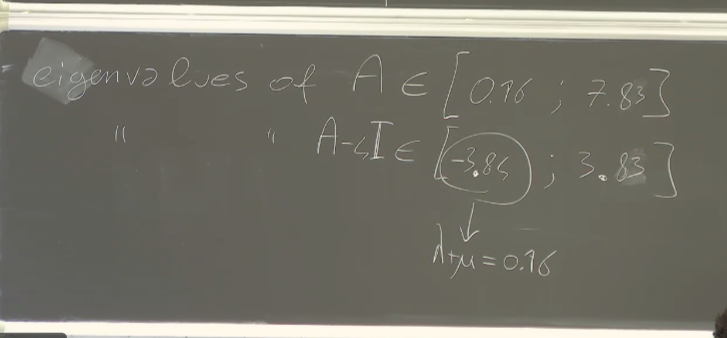 eigenvalues of A ∈ [0.16 ; 7.83]
" " A-4I ∈ [-3.84 ; 3.83]
λ+μ = 0.16